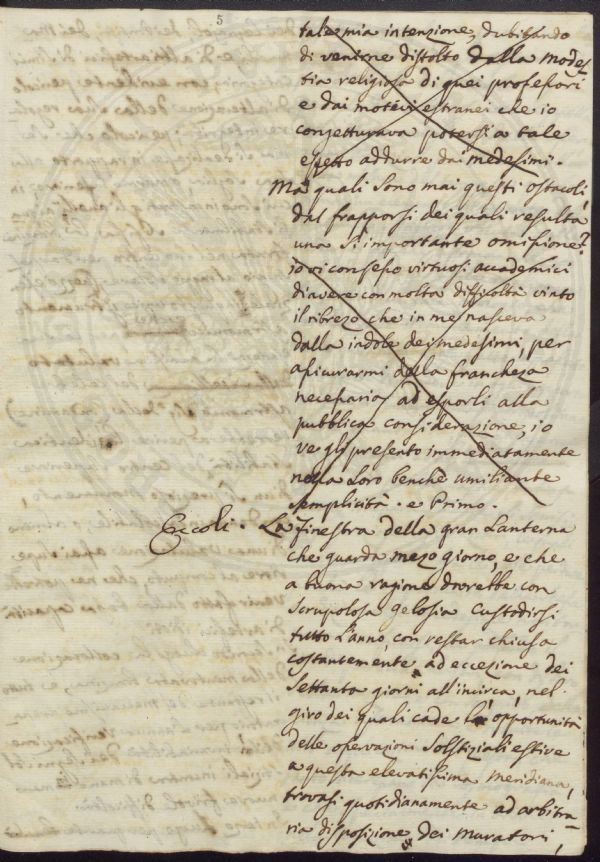 5
tale mia intenzione, dubitando
di venirne distolto dalla modes
tia religiosa di quei professori
e dai motivi estranei che io
conjetturava potersi a tale
effetto addurre dai medesimi.
Ma quali sono mai questi ostacoli,
dal frapporsi dei quali resulta
una si importante omissione?
io vi confesso virtuosi accademici
di avere con molta difficoltà vinto
il ribrezo che in me nasceva
dalla indole dei medesimi, per
assicurarmi della francheza
necessaria ad esporli alla
pubblica considerazione, io
ve gli presento immediatamente
nella loro benchè umiliante
semplicità. e Primo.
Eccoli. La Finestra della gran Lanterna
che guarda mezo giorno, e che
a buona ragione dovrebbe con
scrupolosa gelosia custodirsi
tutto l'anno, con restar chiusa
costantemente, ad eccezione dei
settanta giorni all'incirca, nel
giro dei quali cade l'opportunità
delle operazioni solstiziali estive
a questa elevatissima Meridiana,
trovasi quotidianamente ad arbitra
ria disposizione dei Muratori,